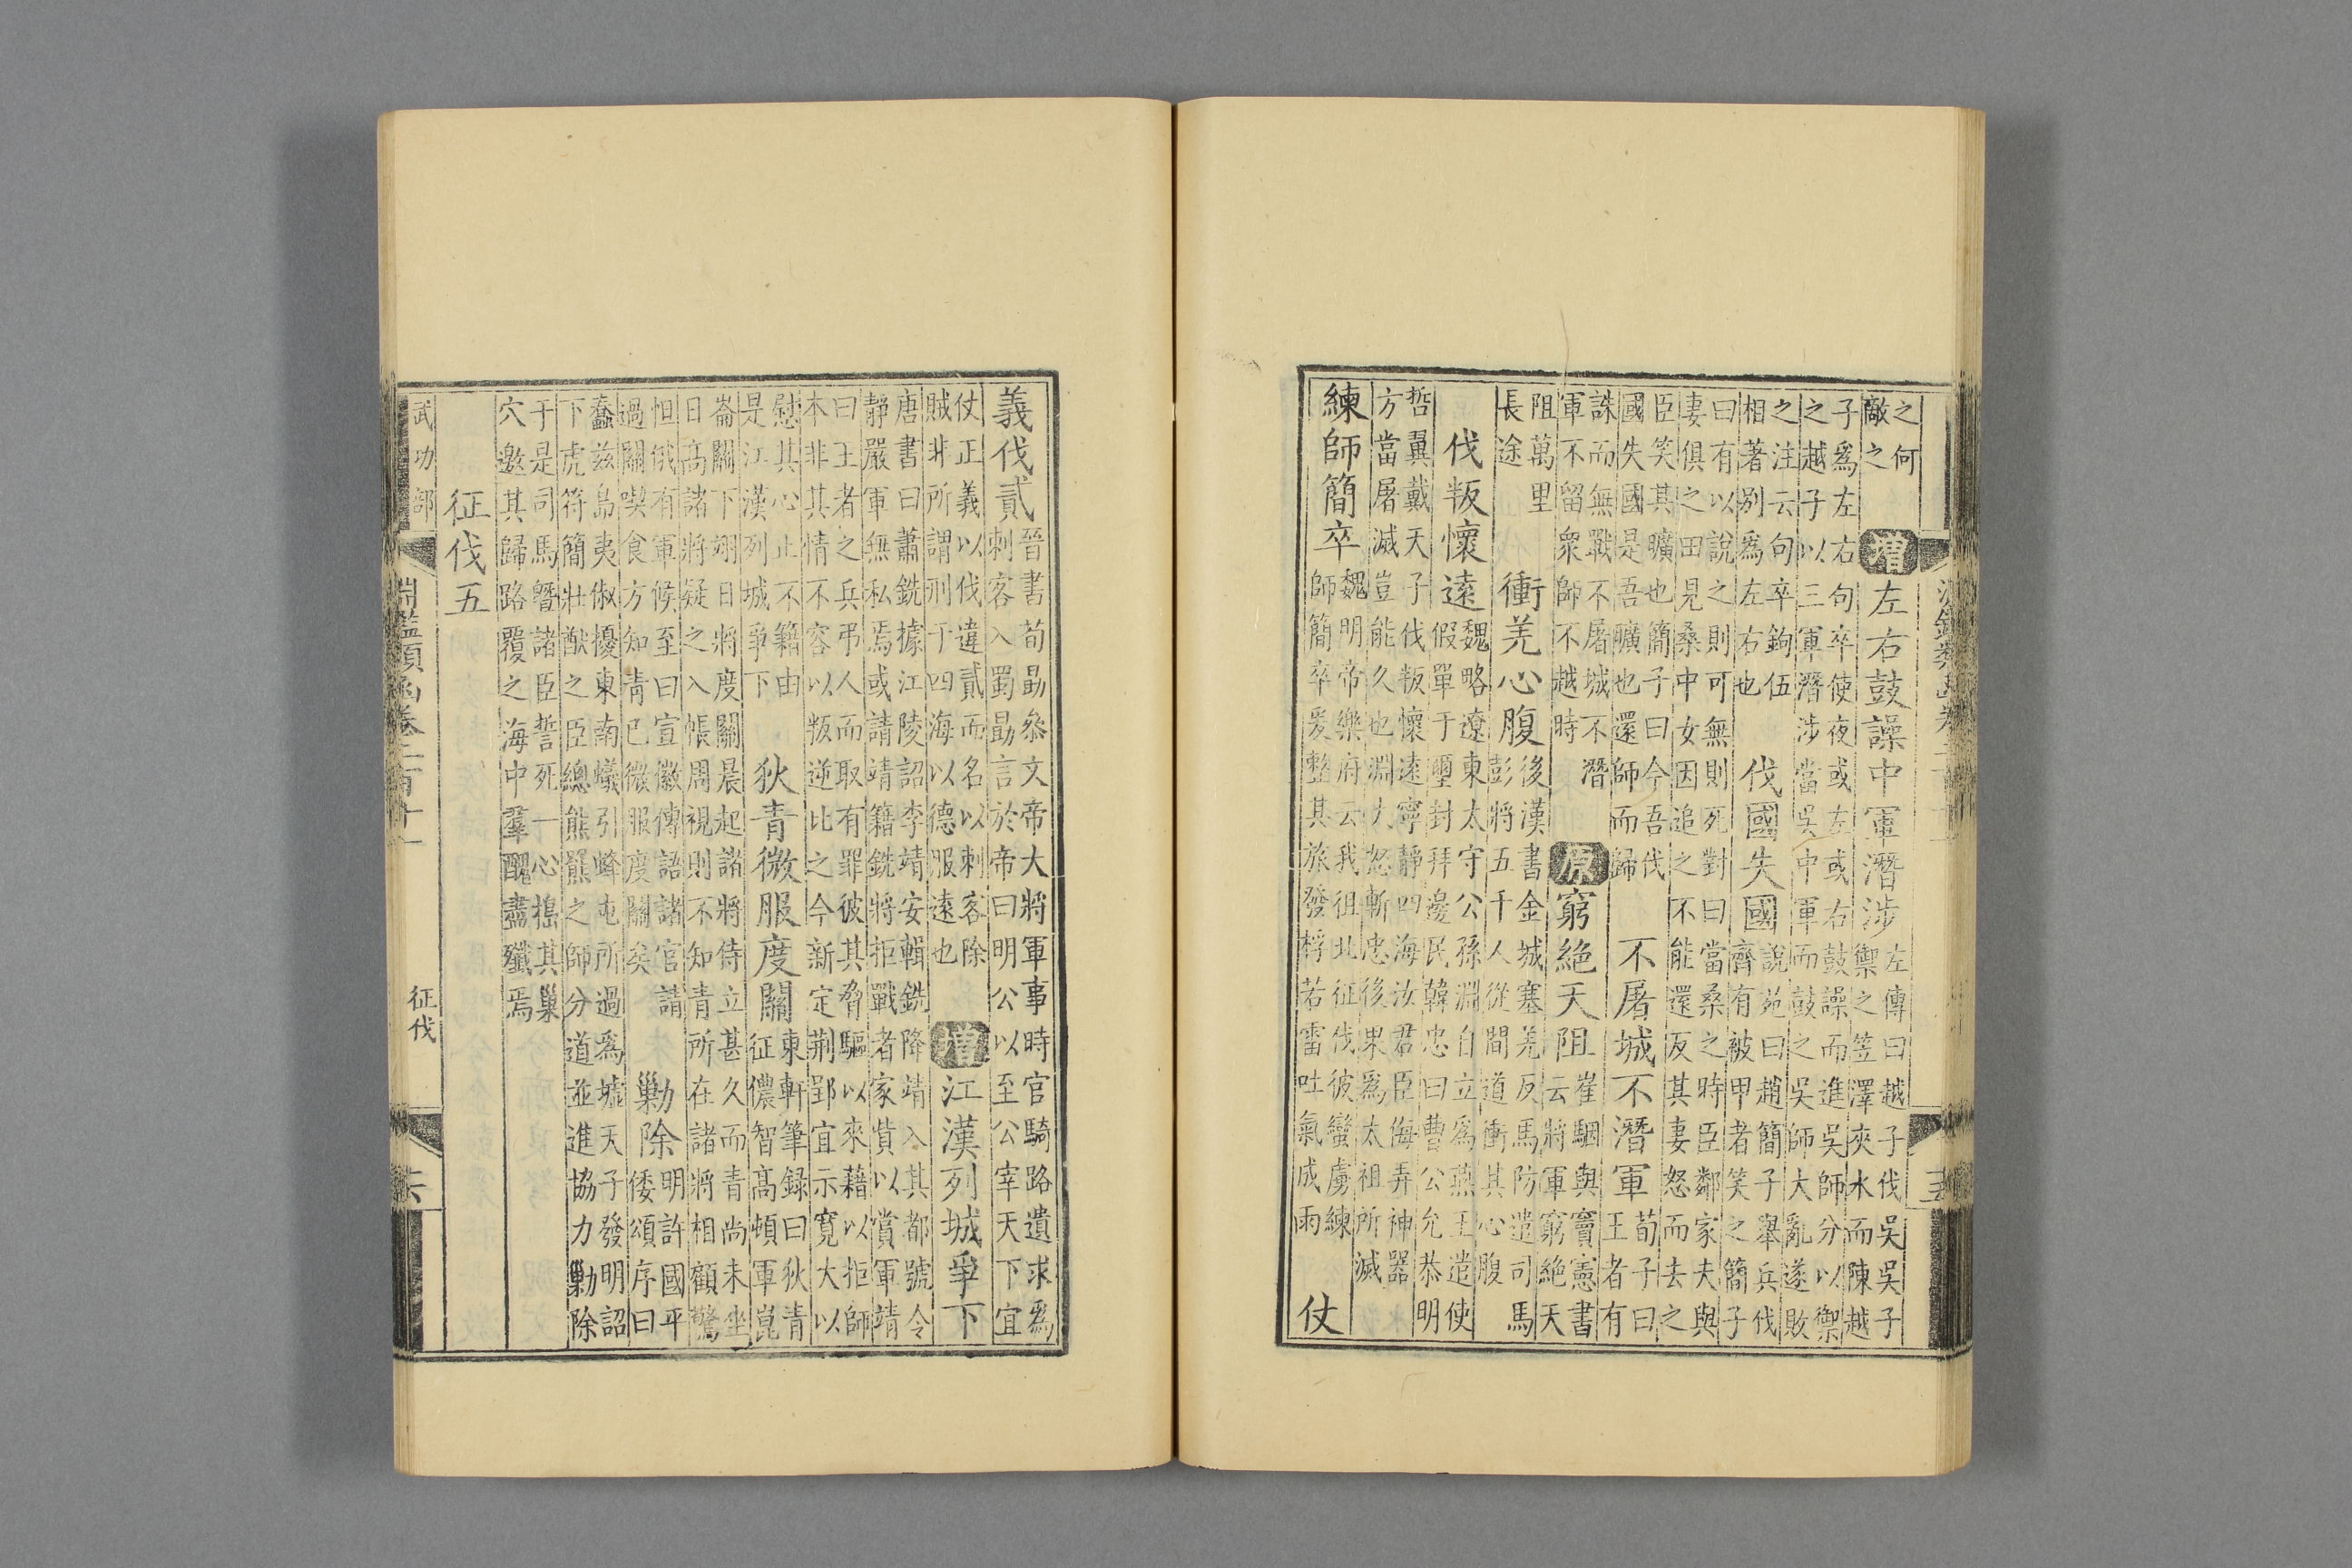 之何
敵之
增
左右鼓譟中軍潛涉
左傳曰越子伐吳吳子
禦之笠澤夾水而陳越
子爲左右句卒使夜或左或右鼓譟而進吳師分以禦
之越子以三軍潛涉當吳中軍而鼓之吳師大亂遂敗
之注云句卒鉤伍
相著别爲左右也
伐國失國
說苑曰趙簡子舉兵伐
齊有被甲者笑之簡子
曰有以說之則可無則死對曰當桑之時臣鄰家夫與
妻俱之田見桑中女因追之不能還反其妻怒而去之
臣笑其曠也簡子曰今吾伐
國失國是吾曠也還師而歸
不屠城不潛軍
荀子曰
王者有
誅而無戰不屠城不潛
軍不留衆師不越時
原
窮絶天阻
崔駰與竇憲書
云將軍窮絶天
阻萬里
長途
衝羌心腹
後漢書金城塞羌反馬防遣司馬
彭將五千人從間道衝其心腹
伐叛懷遠
魏略遼東太守公孫淵自立爲燕王遣使
假單于璽封拜邊民韓忠曰曹公允恭明
哲翼戴天子伐叛懷遠寧靜四海汝君臣侮弄神器
方當屠滅豈能久也淵大怒斬忠後果爲太祖所滅
練師簡卒
魏明帝樂府云我徂北征伐彼蠻虜練
師簡卒爰整其旅發桴若雷吐氣成雨
仗
義伐貳
晉書荀勗叅文帝大將軍事時官騎路遺求爲
刺客入蜀勗言於帝曰明公以至公宰天下宜
仗正義以伐違貳而名以刺客除
賊非所謂刑于四海以德服遠也
增
江漢列城爭下
唐書曰蕭銑據江陵詔李靖安輯銑降靖入其都號令
靜嚴軍無私焉或請靖籍銑將拒戰者家貲以賞軍靖
曰王者之兵弔人而取有罪彼其脅驅以來藉以拒師
本非其情不容以叛逆比之今新定荆郢宜示寬大以
慰其心止不籍由
是江漢列城爭下
狄青微服度關
東軒筆録曰狄青
征儂智高頓軍崑
崙關下翊日將度關晨起諸將侍立甚久而青尚未坐
日高諸將疑之入帳周視則不知青所在諸將相顧驚
怛俄有軍候至曰宣徽傳語諸官請
過關喫食方知青已微服度關矣
勦除
明許國平
倭頌序曰
蠢兹島夷俶擾東南蟻引蜂屯所過爲墟天子發明詔
下虎符簡壯猷之臣總熊羆之師分道並進協力勦除
于是司馬曁諸臣誓死一心搗其巢
穴邀其歸路覆之海中羣醜盡殲焉
征伐五
武功部
淵鑑類函卷二百十一
征伐